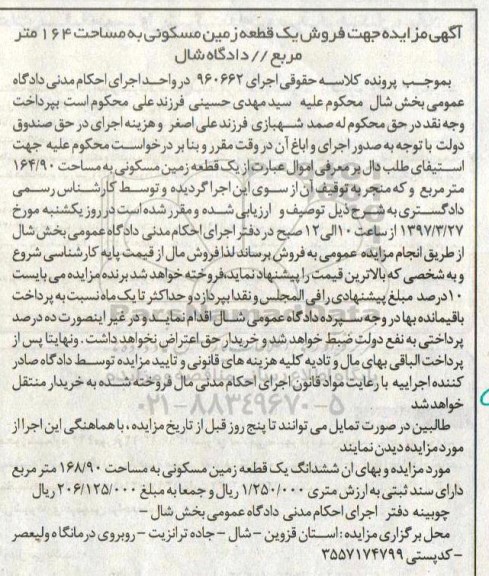 آگهی مزایده جهت فروش یک قطعه زمین مسکونی به مساحت ۱۶۴ متر
مربع // دادگاه شال
بموجب پرونده کلاسه حقوقی اجرای ۹۶۰۶۶۲ در واحد اجرای احکام مدنی دادگاه
عمومی بخش شال محکوم علیه سید مهدی حسینی فرزند علی محکوم است بپرداخت
وجه نقد در حق محکوم له صمد شهبازی فرزند علی اصغر و هزینه اجرای در حق صندوق
دولت با توجه به صدور اجرای و اباغ آن در وقت مقرر و بنا بر درخواست محکوم علیه جهت
استیفای طلب دال بر معرفی اموال عبارت از یک قطعه زمین مسکونی به مساحت ۱۶۴/۹۰
متر مربع و که منجر به توقیف آن از سوی این اجرا گردیده و توسط کارشناس رسمی
دادگستری به شرح ذیل توصیف و ارزیابی شده و مقرر شده است در روز یکشنبه مورخ
۱۳۹۷/۳/۲۷ از ساعت ۱۰ الی ۱۲ صبح در دفتر اجرای احکام مدنی دادگاه عمومی بخش شال
از طریق انجام مزایده عمومی به فروش برساند لذا فروش مال از قیمت پایه کارشناسی شروع
و به شخصی که بالاترین قیمت را پیشنهاد نماید، فروخته خواهد شد برنده مزایده می بایست
۱۰ درصد مبلغ پیشنهادی را فی المجلس و نقدا بپردازد و حداکثر تا یک ماه نسبت به پرداخت
باقیمانده بها در وجه سپرده دادگاه عمومی شال اقدام نمایند و در غیر اینصورت ده درصد
پرداختی به نفع دولت ضبط خواهد شد و خریدار حق اعتراض نخواهد داشت . ونهایتا پس از
پرداخت الباقی بهای مال و تادیه کلیه هزینه های قانونی و تایید مزایده توسط دادگاه صادر
کننده اجراییه با رعایت مواد قانون اجرای احکام مدنی مال فروخته شده به خریدار منتقل
خواهد شد
۰۲۱-۸۸۳۴۹۶۷۰-۵
طالبین در صورت تمایل می توانند تا پنج روز قبل از تاریخ مزایده ، با هماهنگی این اجرا از
مورد مزایده دیدن نمایند
مورد مزایده و بهای ان ششدانگ یک قطعه زمین مسکونی به مساحت ۱۶۸/۹۰ متر مربع
دارای سند ثبتی به ارزش متری ۱/۲۵۰/۰۰۰ ریال و جمعا به مبلغ ۲۰۶/۱۲۵/۰۰۰ ریال
چوبینه دفتر اجرای احکام مدنی دادگاه عمومی بخش شال –
محل برگزاری مزایده : استان قزوین – شال – جاده ترانزیت – روبروی درمانگاه ولیعصر
– کدپستی ۳۵۵۷۱۷۴۷۹۹